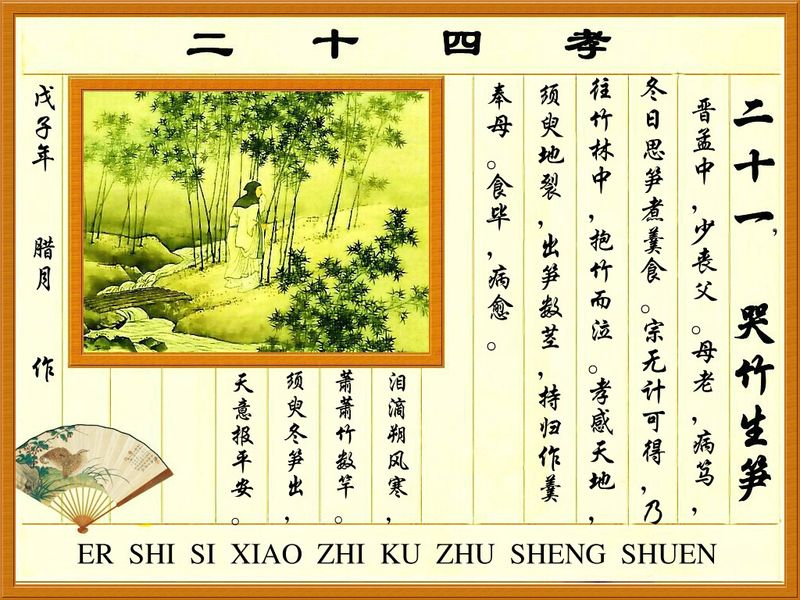 二 十 四 孝
二十一, 哭竹生笋
晋孟中，少丧父。母老，病笃，
冬日思笋煮羹食。宗无计可得，乃
往竹林中，抱竹而泣。孝感天地，
须臾地裂，出笋数茎，持归作羹
奉母。食毕，病愈。
泪滴朔风寒，
萧萧竹数竿。
须臾冬笋出，
天意报平安。
戊子年 腊月 作
ER SHI SI XIAO ZHI KU ZHU SHENG SHUEN